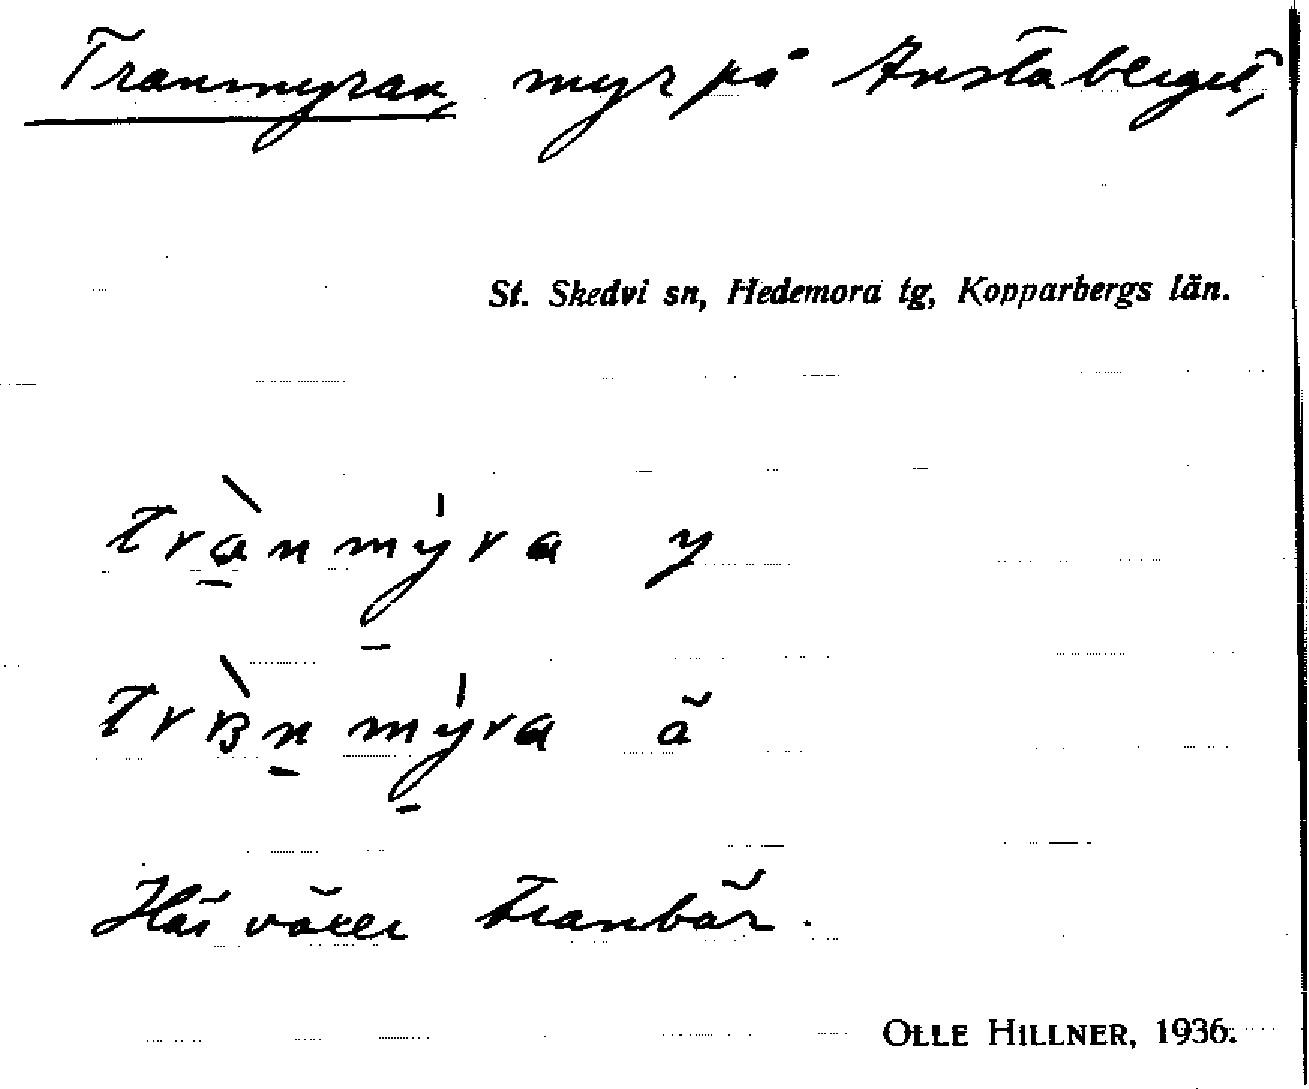 Tranmyran, myr på Anstaberget,
St. Skedvi sn, Hedemora tg, Kopparbergs län.
trànmýra y
trànmýra ä
Här växer tranbär.
OLLE HILLNER, 1936.